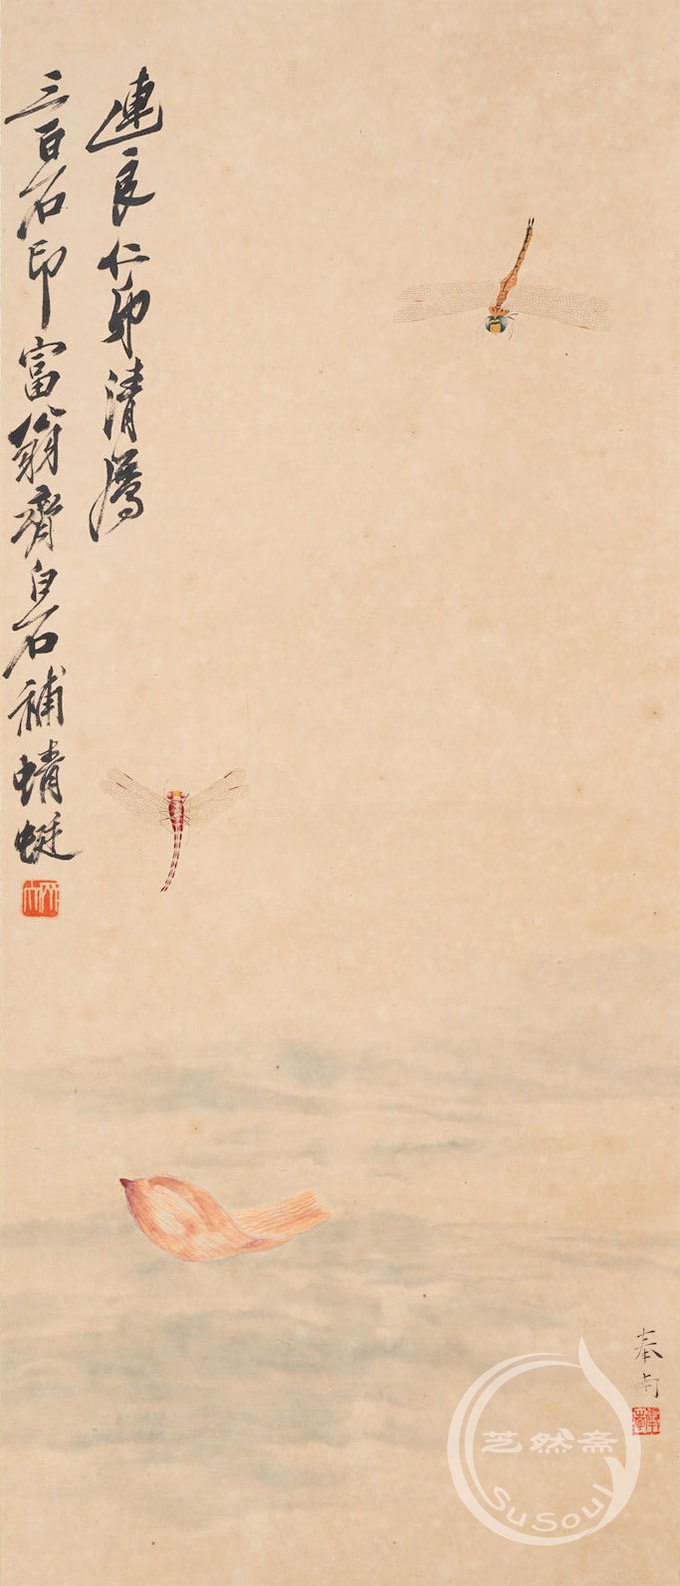 連良仁弟清屬
三百石印富翁齊白石補蜻蜓
芝然斋
SuSoul